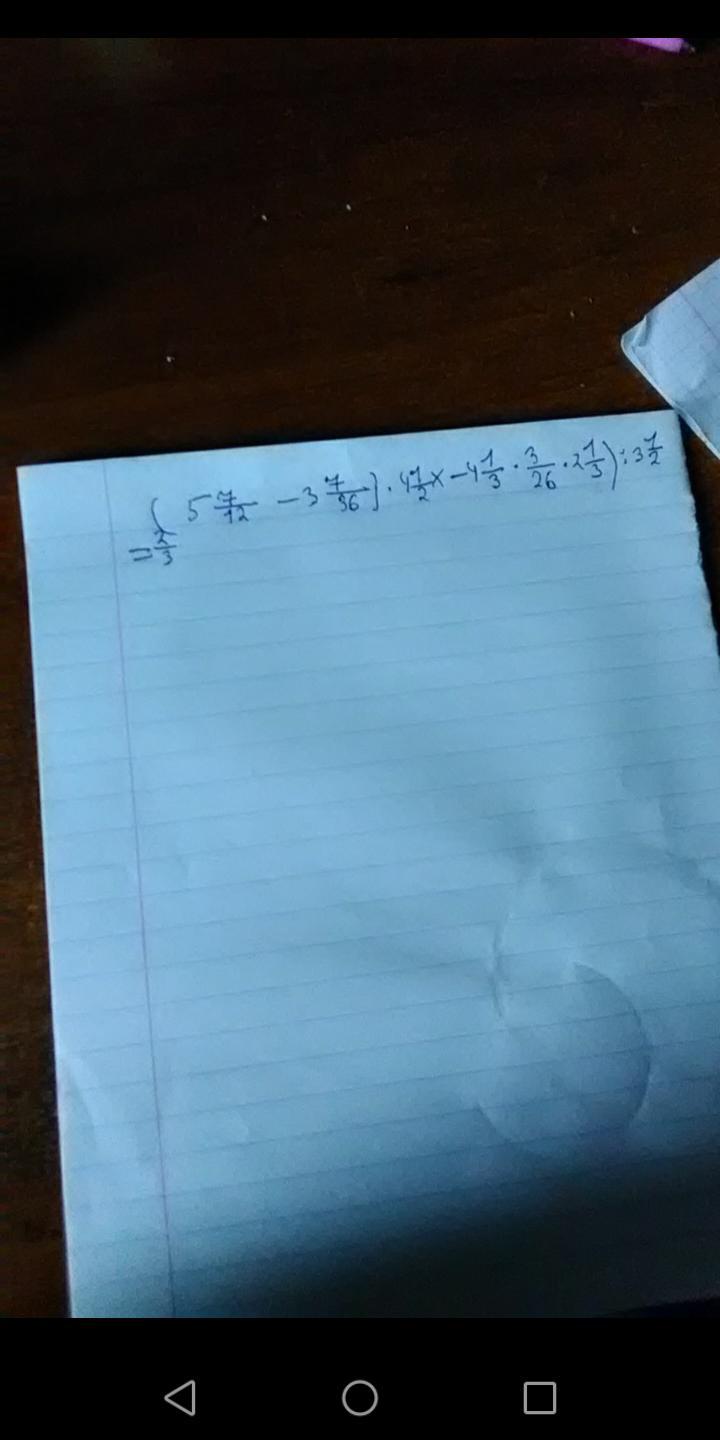 ( 5 7/12 - 3 7/36 ) · 4 1/2 x - 4 1/3 · 3/26 · 2 1/3 ) : 3 1/2
= 2/3